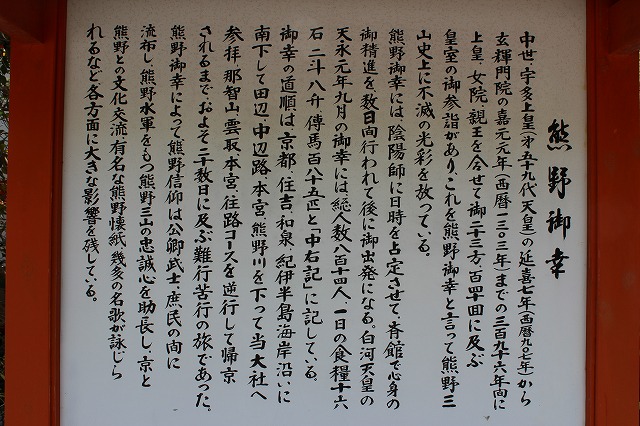 熊野御幸
中世・宇多上皇(第五十九代天皇)の延喜七年(西暦九〇七年)から
玄輝門院の嘉元元年(西暦一三〇三年)までの三百九十六年間に
上皇、女院、親王を合せて御二十三方・百四十回に及ぶ
皇室の御参詣があり、これを熊野御幸と言って熊野三
山史上に不滅の光彩を放っている。
熊野御幸には、陰陽師に日時を占定させて、斉館で心身の
御精進を数日間行われて後に御出発になる。白河天皇の
天永元年九月の御幸には総人数八百十四人、一日の食糧十六
石二斗八升、傳馬百八十五匹と「中右記」に記している。
御幸の道順は京都、住吉、和泉、紀伊半島海岸沿いに
南下して田辺、中辺路、本宮、熊野川を下って当大社へ
参拝、那智山、雲取、本宮、往路コースを逆行して帰京
されるまでおよそ二千数日に及ぶ難行苦行の旅であった。
熊野御幸によって熊野信仰は公卿、武士、庶民の間に
流布し、熊野水軍をもつ熊野三山の忠誠心を助長し、京と
熊野との文化交流、有名な熊野懐紙、幾多の名歌が詠じら
れるなど各方面に大きな影響を残している。